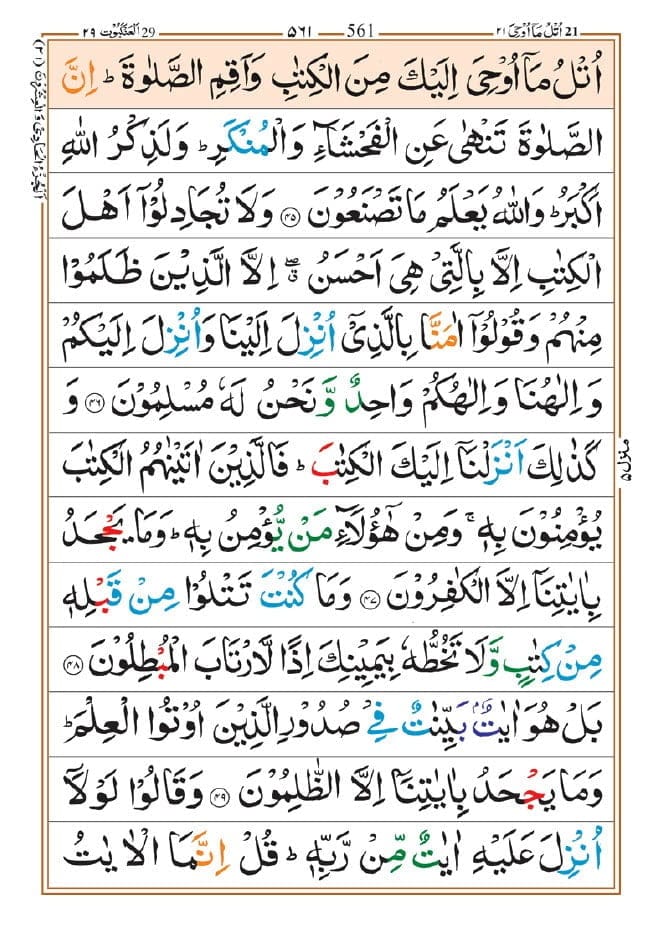 21 اُتْلُ مَآ اُوْحِيَ ۲۱
561 ۵۶۱
29 اَلْعَنْكَبُوْت ۲۹
اُتْلُ مَآ اُوْحِیَ اِلَیْكَ مِنَ الْكِتٰبِ وَاَقِمِ الصَّلٰوةَ ؕ اِنَّ
الصَّلٰوةَ تَنْهٰی عَنِ الْفَحْشَآءِ وَالْمُنْكَرِ ؕ وَلَذِكْرُ اللّٰهِ
اَكْبَرُ ؕ وَاللّٰهُ یَعْلَمُ مَا تَصْنَعُوْنَ ﴿۴۵﴾ وَلَا تُجَادِلُوْۤا اَهْلَ
الْكِتٰبِ اِلَّا بِالَّتِیْ هِیَ اَحْسَنُ ۖۗ اِلَّا الَّذِیْنَ ظَلَمُوْا
مِنْهُمْ وَقُوْلُوْۤا اٰمَنَّا بِالَّذِیْۤ اُنْزِلَ اِلَیْنَا وَاُنْزِلَ اِلَیْكُمْ
وَاِلٰهُنَا وَاِلٰهُكُمْ وَاحِدٌ وَّنَحْنُ لَهٗ مُسْلِمُوْنَ ﴿۴۶﴾ وَ
كَذٰلِكَ اَنْزَلْنَاۤ اِلَیْكَ الْكِتٰبَ ؕ فَالَّذِیْنَ اٰتَیْنٰهُمُ الْكِتٰبَ
یُؤْمِنُوْنَ بِهٖ ۚ وَمِنْ هٰۤؤُلَآءِ مَنْ یُّؤْمِنُ بِهٖ ؕ وَمَا یَجْحَدُ
بِاٰیٰتِنَاۤ اِلَّا الْكٰفِرُوْنَ ﴿۴۷﴾ وَمَا كُنْتَ تَتْلُوْا مِنْ قَبْلِهٖ
مِنْ كِتٰبٍ وَّلَا تَخُطُّهٗ بِیَمِیْنِكَ اِذًا لَّارْتَابَ الْمُبْطِلُوْنَ ﴿۴۸﴾
بَلْ هُوَ اٰیٰتٌۢ بَیِّنٰتٌ فِیْ صُدُوْرِ الَّذِیْنَ اُوْتُوا الْعِلْمَ ؕ
وَمَا یَجْحَدُ بِاٰیٰتِنَاۤ اِلَّا الظّٰلِمُوْنَ ﴿۴۹﴾ وَقَالُوْا لَوْلَاۤ
اُنْزِلَ عَلَیْهِ اٰیٰتٌ مِّنْ رَّبِّهٖ ؕ قُلْ اِنَّمَا الْاٰیٰتُ
اَلْجُزْءُ الْحَادِیْ وَالْعِشْرُوْنَ (۲۱)
منزل ۵